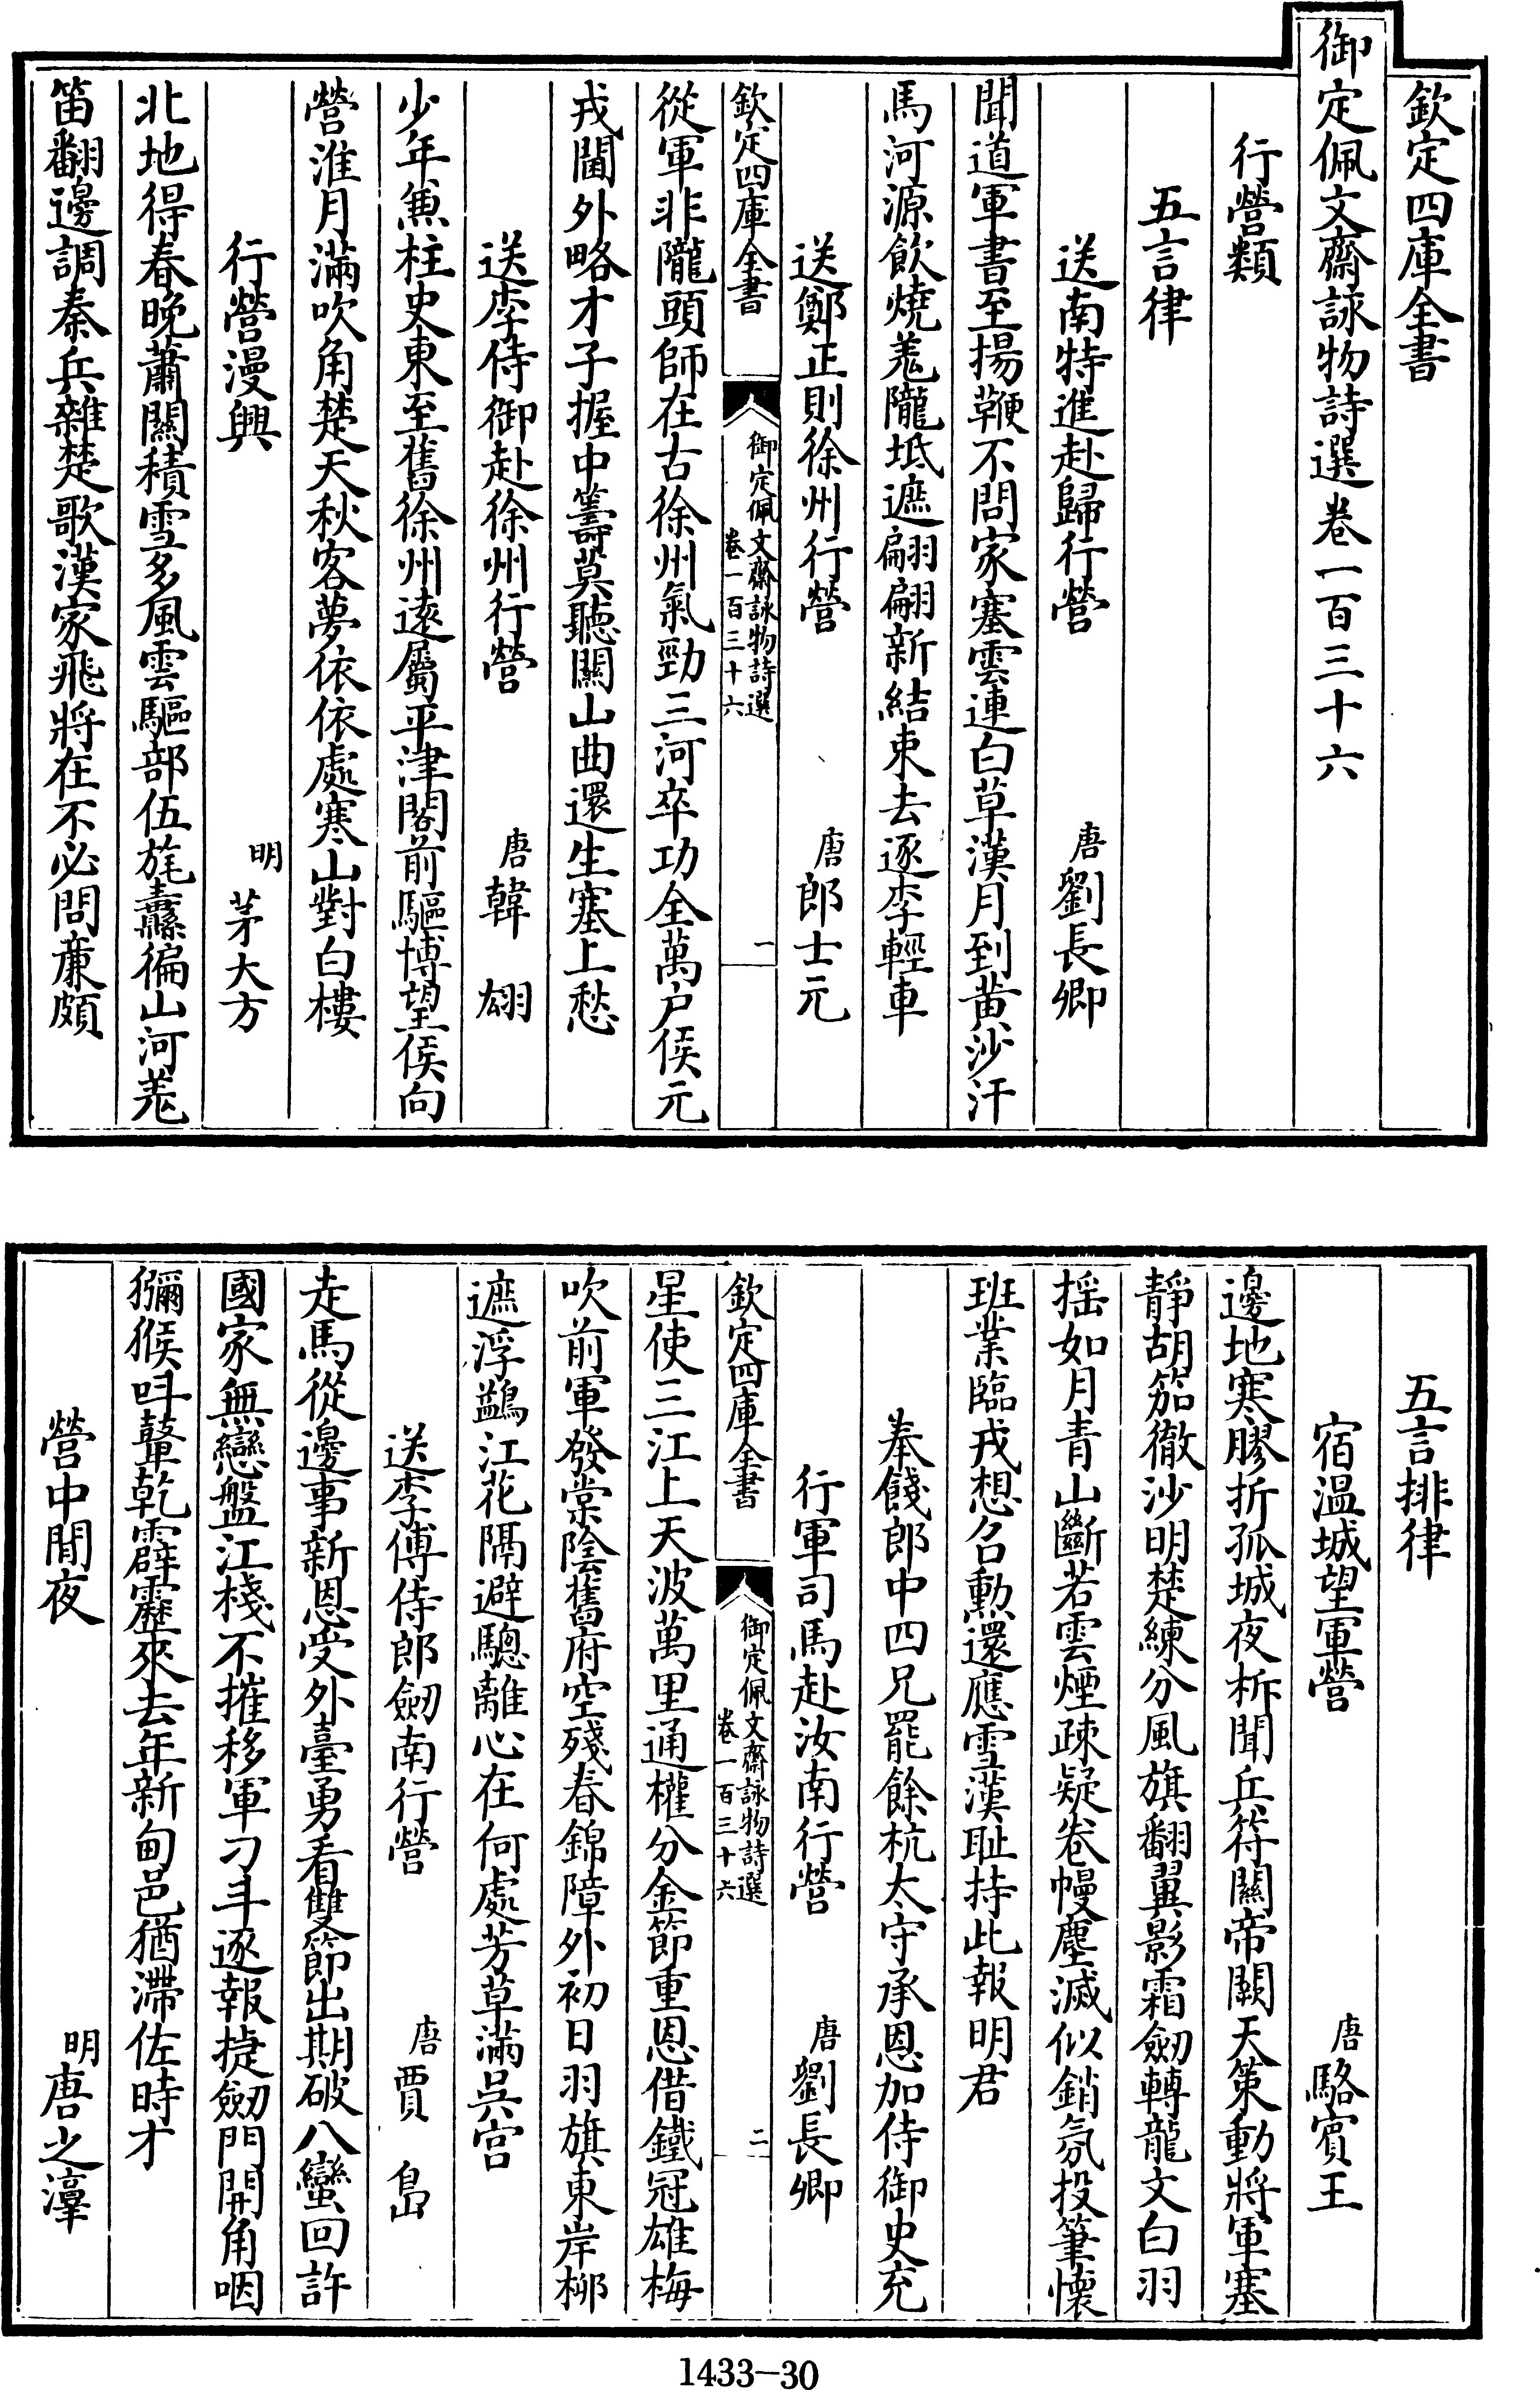 欽定四庫全書
御定佩文齋詠物詩選卷一百三十六
行營類
五言律
送南特進赴歸行營 唐劉長卿
聞道軍書至揚鞭不問家塞雲連白草漢月到黄沙汗
馬河源飲燒羗隴坻遮翩翩新結束去逐李輕車
送鄭正則徐州行營 唐郎士元
欽定四庫全書 御定佩文齋詠物詩選 卷一百三十六 一
從軍非隴頭師在古徐州氣勁三河卒功全萬户侯元
戎閫外略才子握中籌莫聽關山曲還生塞上愁
送李侍御赴徐州行營 唐韓翃
少年兼柱史東至舊徐州逺屬平津閣前驅博望侯向
營淮月滿吹角楚天秋客夢依依處寒山對白樓
行營漫興 明茅大方
北地得春晚蕭關積雪多風雲驅部伍旄纛徧山河羗
笛翻邊調秦兵雜楚歌漢家飛將在不必問亷頗
五言排律
宿温城望軍營 唐駱賓王
邊地寒膠折孤城夜柝聞兵符關帝闕天策動將軍塞
靜胡笳徹沙明楚練分風旗翻翼影霜劒轉龍文白羽
揺如月青山斷若雲煙疎疑卷幔塵滅似銷氛投筆懷
班業臨戎想召勲還應雪漢耻持此報明君
奉餞郎中四兄罷餘杭太守承恩加侍御史充
行軍司馬赴汝南行營 唐劉長卿
欽定四庫全書 御定佩文齋詠物詩選 卷一百三十六 二
星使三江上天波萬里通權分金節重恩借鐵冠雄梅
吹前軍發棠陰舊府空殘春錦障外初日羽旗東岸柳
遮浮鷁江花隔避驄離心在何處芳草滿吳宫
送李傅侍郎劒南行營 唐賈島
走馬從邊事新恩受外臺勇看雙節出期破八蠻回許
國家無戀盤江棧不摧移軍刁斗逐報捷劒門開角咽
獼猴呌鼙乾霹靂來去年新甸邑猶滯佐時才
營中閒夜 明唐之淳
1433-30